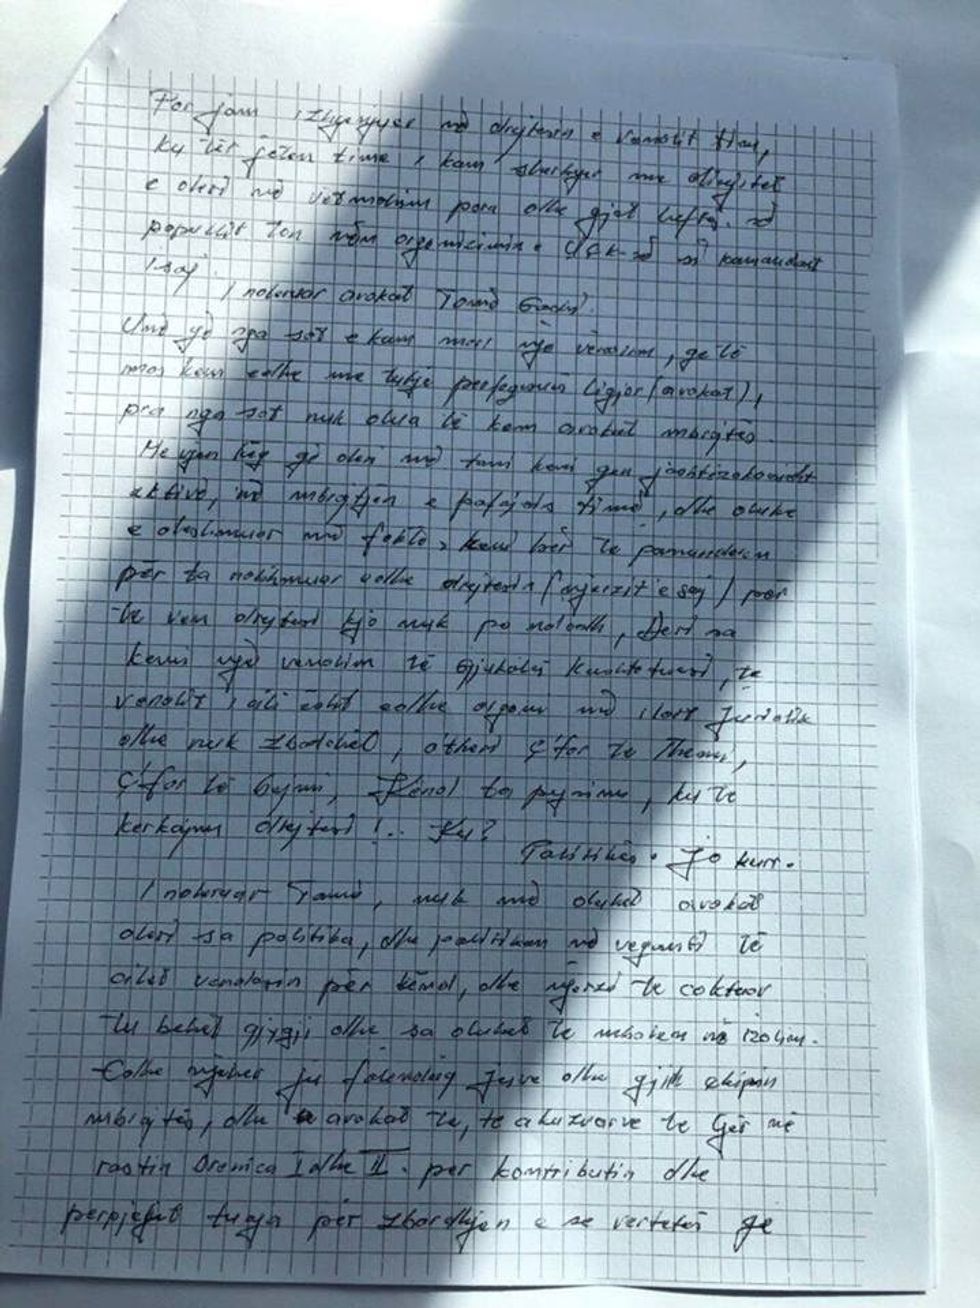 Por jam i zhgenjyer në drejtesin e vendit tim,
ku tër jeten time i kam sherbyer me dinjitet
e deri në vetmohim para dhe gjat luftes. së
popullit ton nën organizimin e UÇK-së si komandant
i saj.
I nderuar avokat Tomë Gashi.
Unë që nga sot e kam marr një vendim, qe të
mos kem edhe me tutje perfaqesues ligjor (avokat),
pra nga sot nuk dua të kem avokat mbrojtës.
Me vjen keq që deri më tani keni qen jashtzakonisht
aktivë, në mbrojtjen e pafajsis timë, dhe duke
e deshmuar me fakte, keni bër te pamunduren
për ta ndihmuar edhe drejtesin (njerzit e saj) por
te ven drejtesi kjo nuk po ndodh, Deri sa
kemi një vendim të Gjykatës Kushtetuese, te
vendit, i cili është edhe organi më i lart Juridik
dhe nuk zbatohet, atheri ç'far te Themi,
Ç'far të bejmi, Kënd ta pyesim, ku te
kerkojmë drejtesi !.. Ku?
Politikës. Jo kurr.
I nderuar Tomë, nuk më duhet avokat
deri sa politika, dhe politikan në veganti të
cilët vendosin për këmd, dhe njerzë te caktuar
tu behet gjygji dhe sa duhet te mbahen në izolim.
Edhe njeher ju falenderoj Juve dhe gjith ekipin
mbrojtës, dhe avokat te, te akuzuarve te tjer në
rastin Drenica I dhe II. per kontributin dhe
perpjekjet tuaja për zbardhjen e se vertetës që